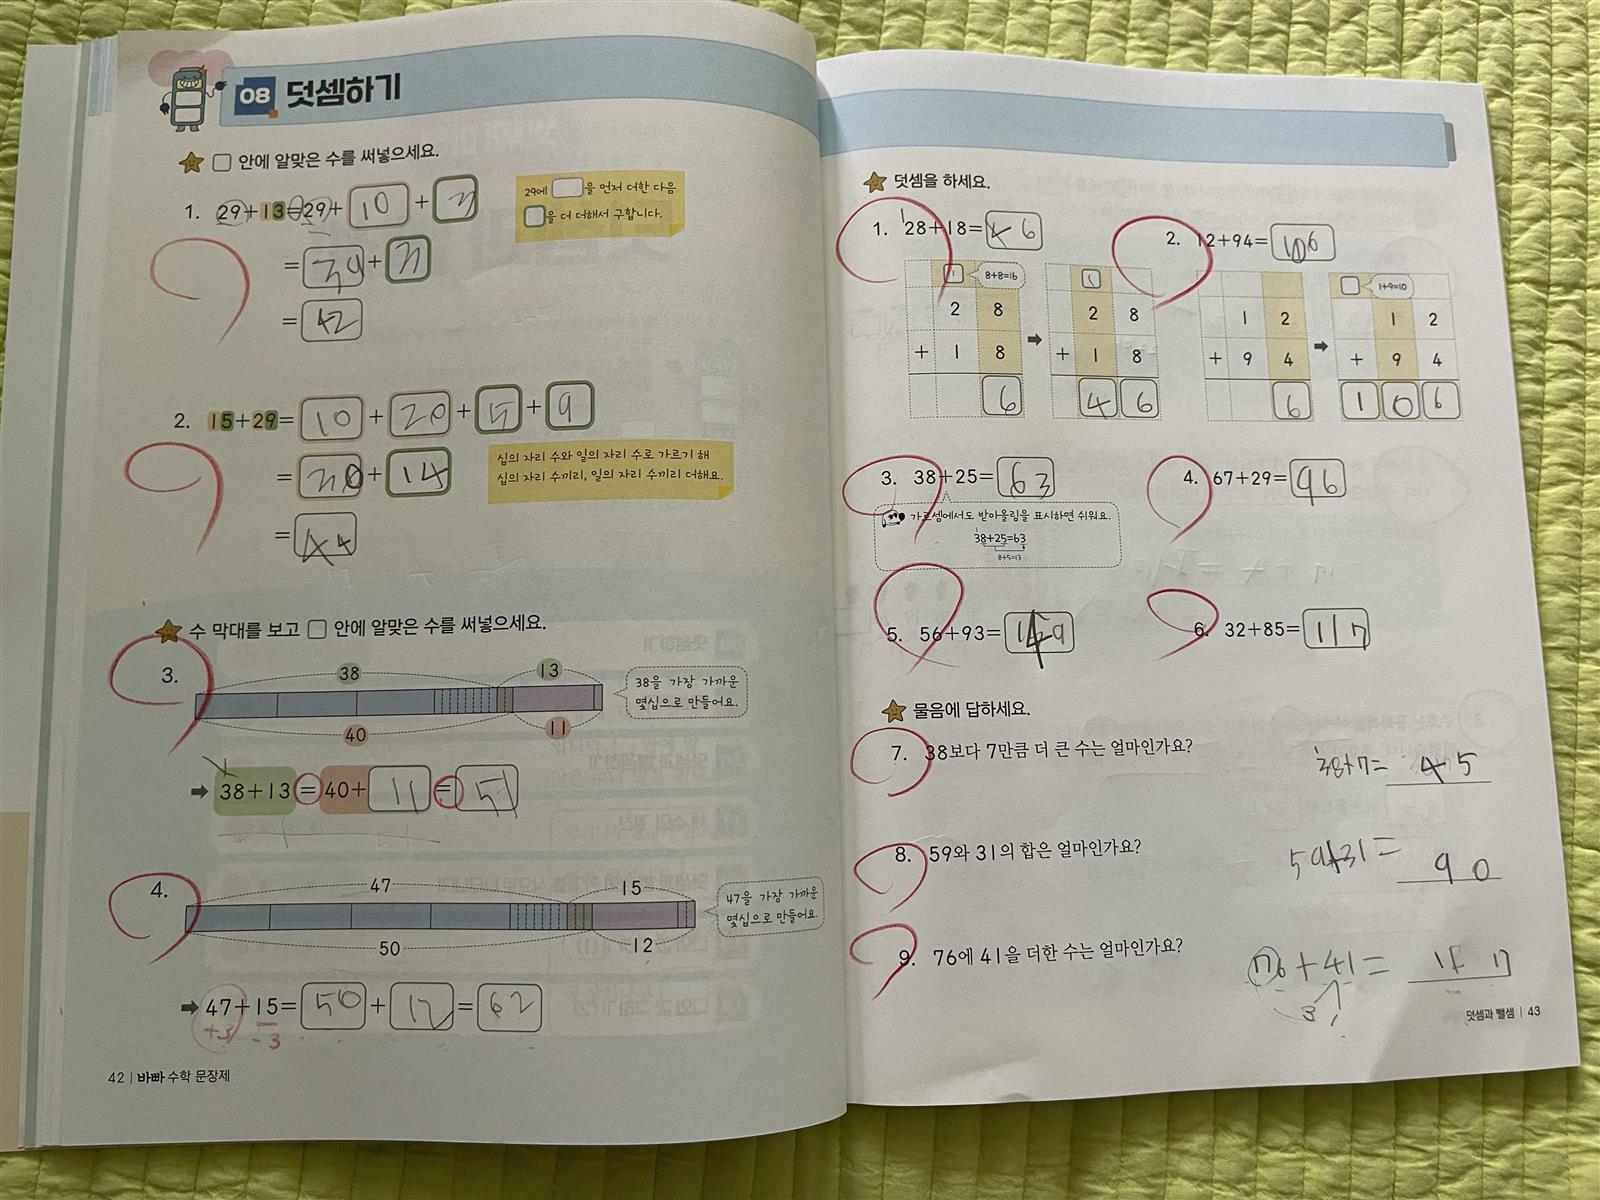 08 덧셈하기
□ 안에 알맞은 수를 써넣으세요.
1. 29+13=29+ 10 + 3
= 39 + 3
= 42
29에 □을 먼저 더한 다음
□을 더 더해서 구합니다.
2. 15+29= 10 + 20 + 5 + 9
= 30 + 14
= 44
십의 자리 수와 일의 자리 수로 가르기 해
십의 자리 수끼리, 일의 자리 수끼리 더해요.
수 막대를 보고 □ 안에 알맞은 수를 써넣으세요.
3.
38 13
40 11
38을 가장 가까운
몇십으로 만들어요.
➡ 38+13=40+ 11 = 51
4.
47 15
50 12
47을 가장 가까운
몇십으로 만들어요.
➡ 47+15= 50 + 12 = 62
+3 -3
42 | 바빠 수학 문장제
덧셈을 하세요.
1. 28+18= 46
1 8+8=16 1
2 8 2 8
+ 1 8 + 1 8
6 4 6
2. 12+94= 106
1+9=10
1 2 1 2
+ 9 4 + 9 4
6 1 0 6
3. 38+25= 63
가로셈에서도 받아올림을 표시하면 쉬워요.
1
38+25=63
8+5=13
4. 67+29= 96
5. 56+93= 149
6. 32+85= 117
물음에 답하세요.
7. 38보다 7만큼 더 큰 수는 얼마인가요?
38+7= 45
8. 59와 31의 합은 얼마인가요?
59+31= 90
9. 76에 41을 더한 수는 얼마인가요?
76+41= 117
3 1
덧셈과 뺄셈 | 43